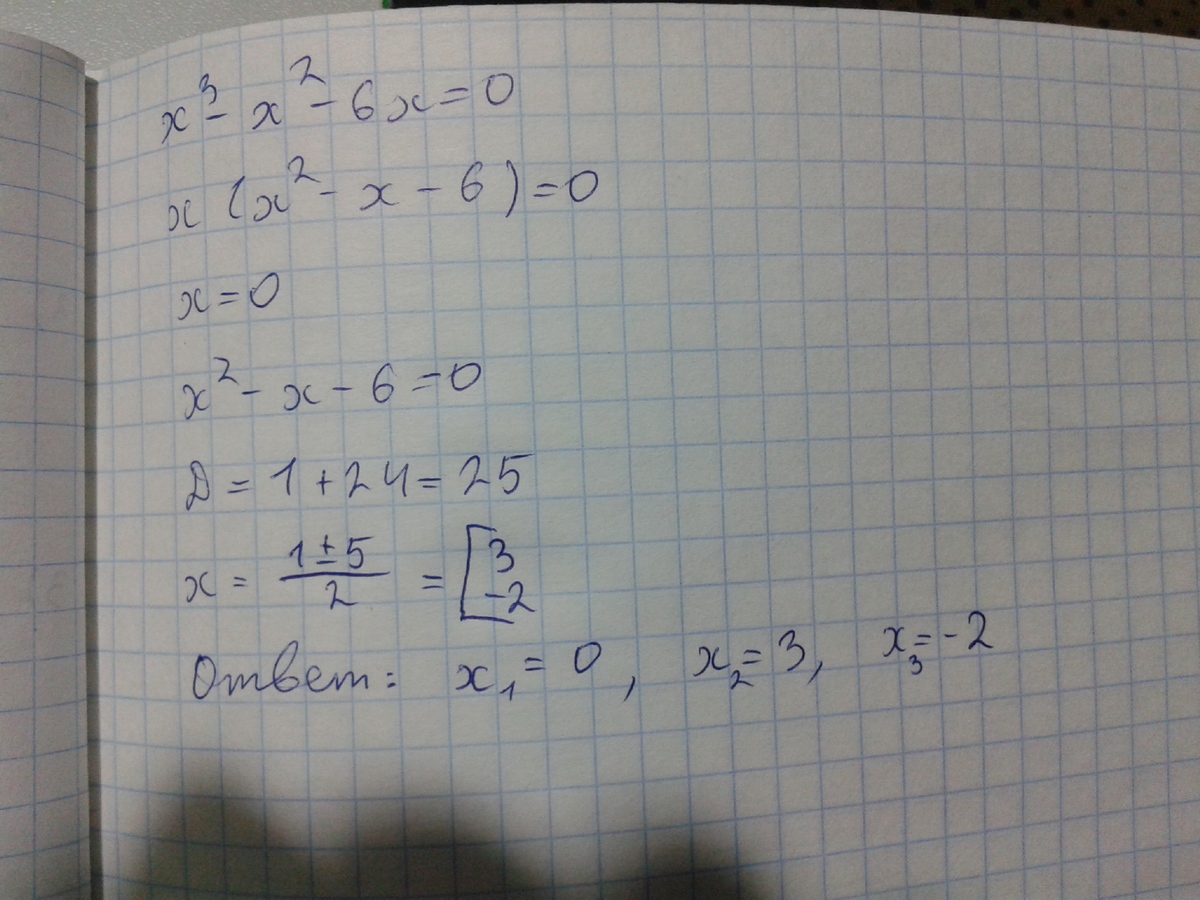 x³ - x² - 6x = 0
x (x² - x - 6) = 0
x = 0
x² - x - 6 = 0
D = 1 + 24 = 25
x = (1 ± 5)/2 = [3 -2
Ответ: x₁ = 0, x₂ = 3, x₃ = -2